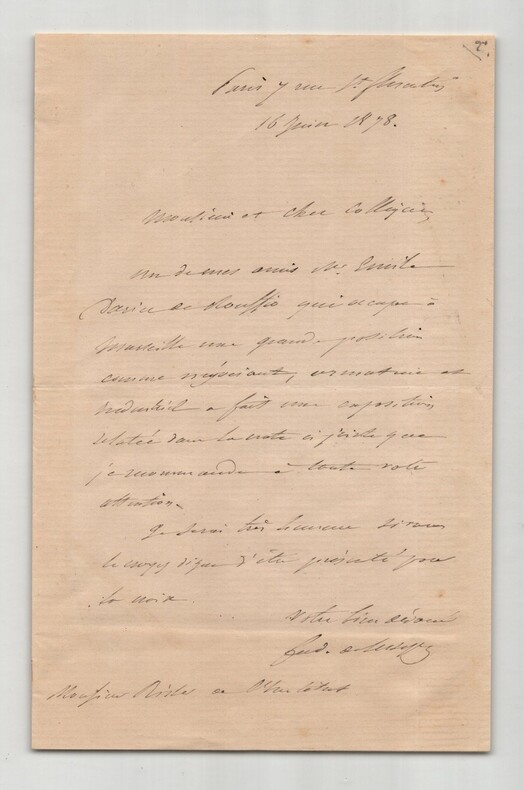 Paris 7 rue St Florentin
16 Juin 1878.
Monsieur et cher Collègue,
un de mes amis Mr. Emile
de qui occupe à
Marseille une grande position
comme négociant, armateur et
industriel a fait une exposition
relatée dans la note ci jointe que
je recommande à toute votre
attention.
Je serai très heureux si vous
le croyez digne d'être présenté pour
la croix
Votre bien dévoué
ferd. de Lesseps
Monsieur de l'Institut